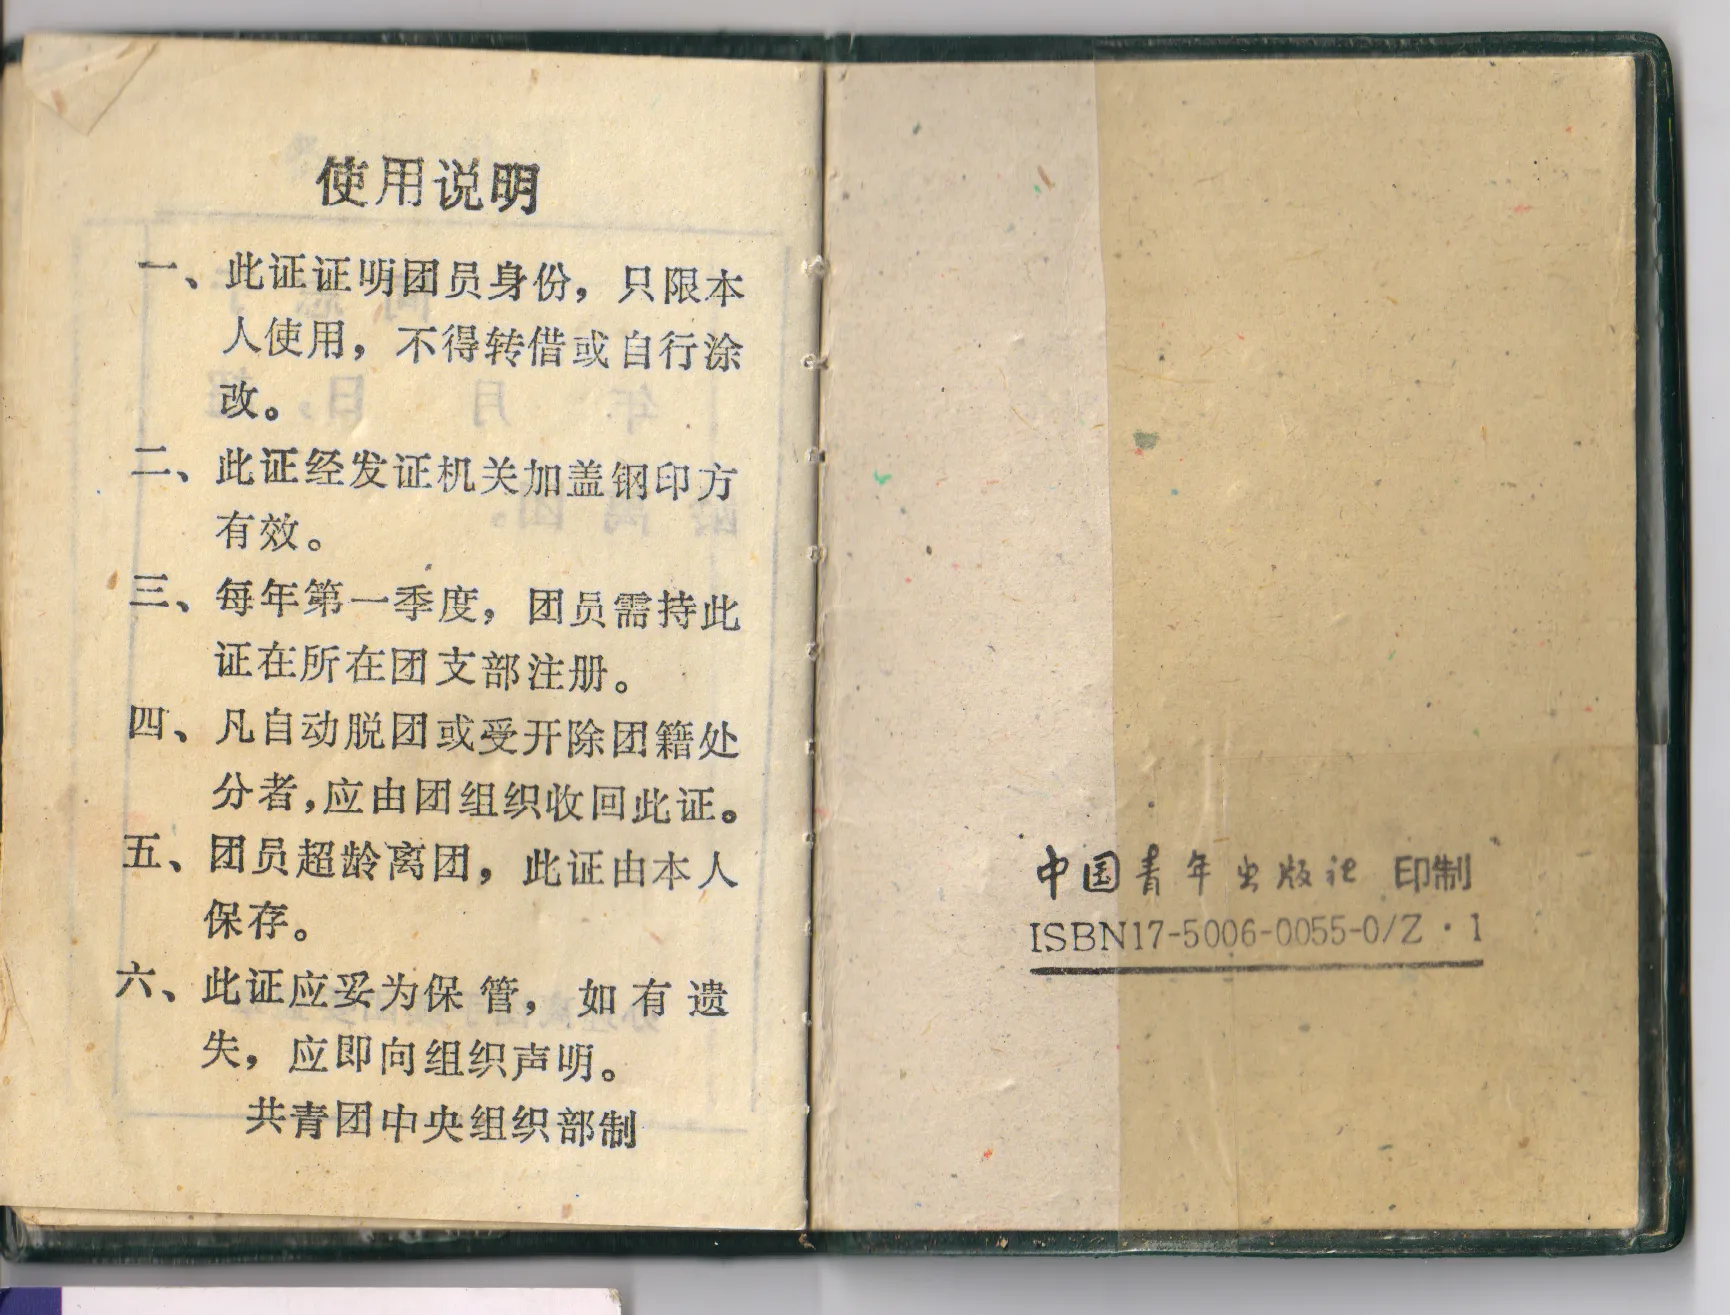 使用说明
一、此证证明团员身份，只限本
人使用，不得转借或自行涂
改。
二、此证经发证机关加盖钢印方
有效。
三、每年第一季度，团员需持此
证在所在团支部注册。
四、凡自动脱团或受开除团籍处
分者，应由团组织收回此证。
五、团员超龄离团，此证由本人
保存。
六、此证应妥为保管，如有遗
失，应即向组织声明。
共青团中央组织部制
中国青年出版社 印制
ISBN17-5006-0055-0/Z·1